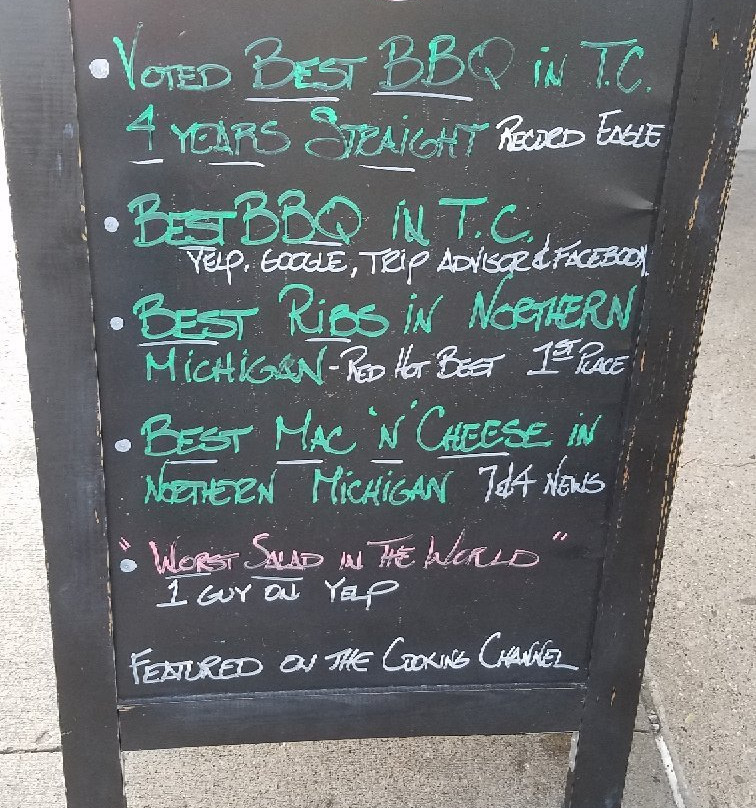 • VOTED BEST BBQ IN T.C.
4 YEARS STRAIGHT RECORD EAGLE
• BEST BBQ IN T.C.
YELP, GOOGLE, TRIP ADVISOR & FACEBOOK
• BEST RIBS IN NORTHERN
MICHIGAN - RED HOT BEST 1ST PLACE
• BEST MAC 'N' CHEESE IN
NORTHERN MICHIGAN 7&4 NEWS
• "WORST SALAD IN THE WORLD"
1 GUY ON YELP
FEATURED ON THE COOKING CHANNEL